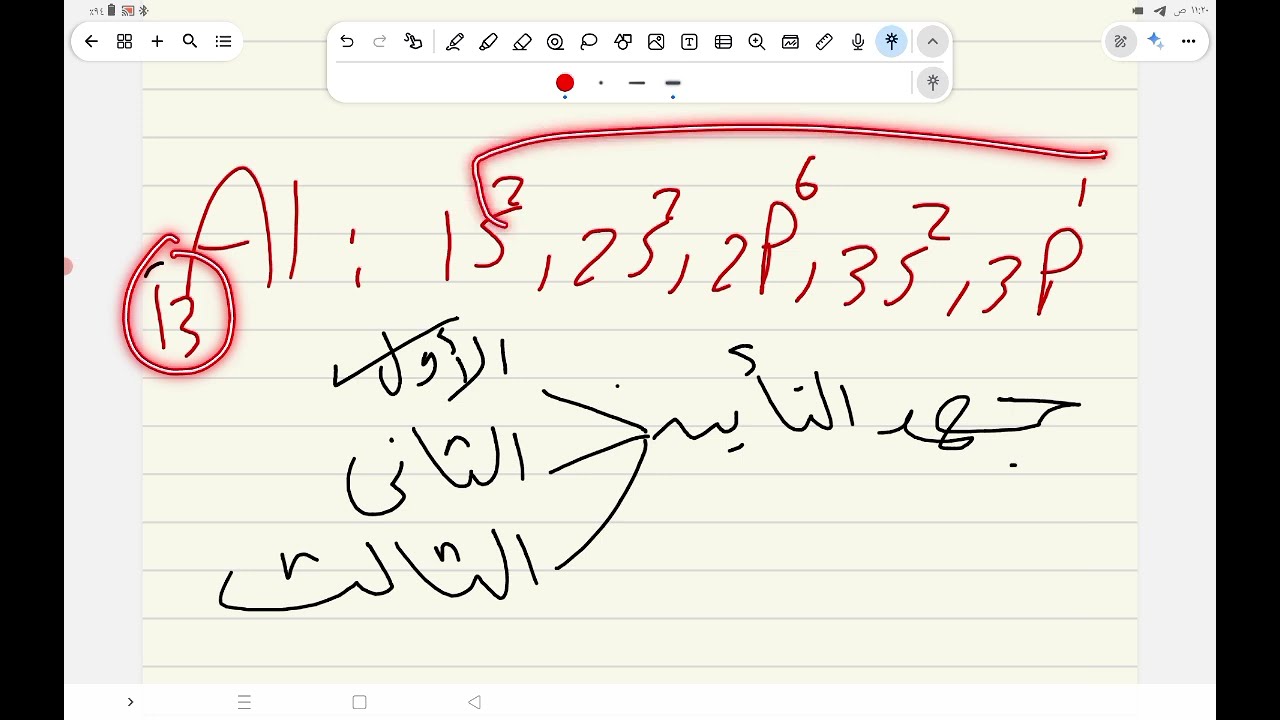 ٪٩٤
١١:٢٠ ص
Al : 1s², 2s², 2p⁶, 3s², 3p¹
13
جهد التأين
الأول
الثاني
الثالث